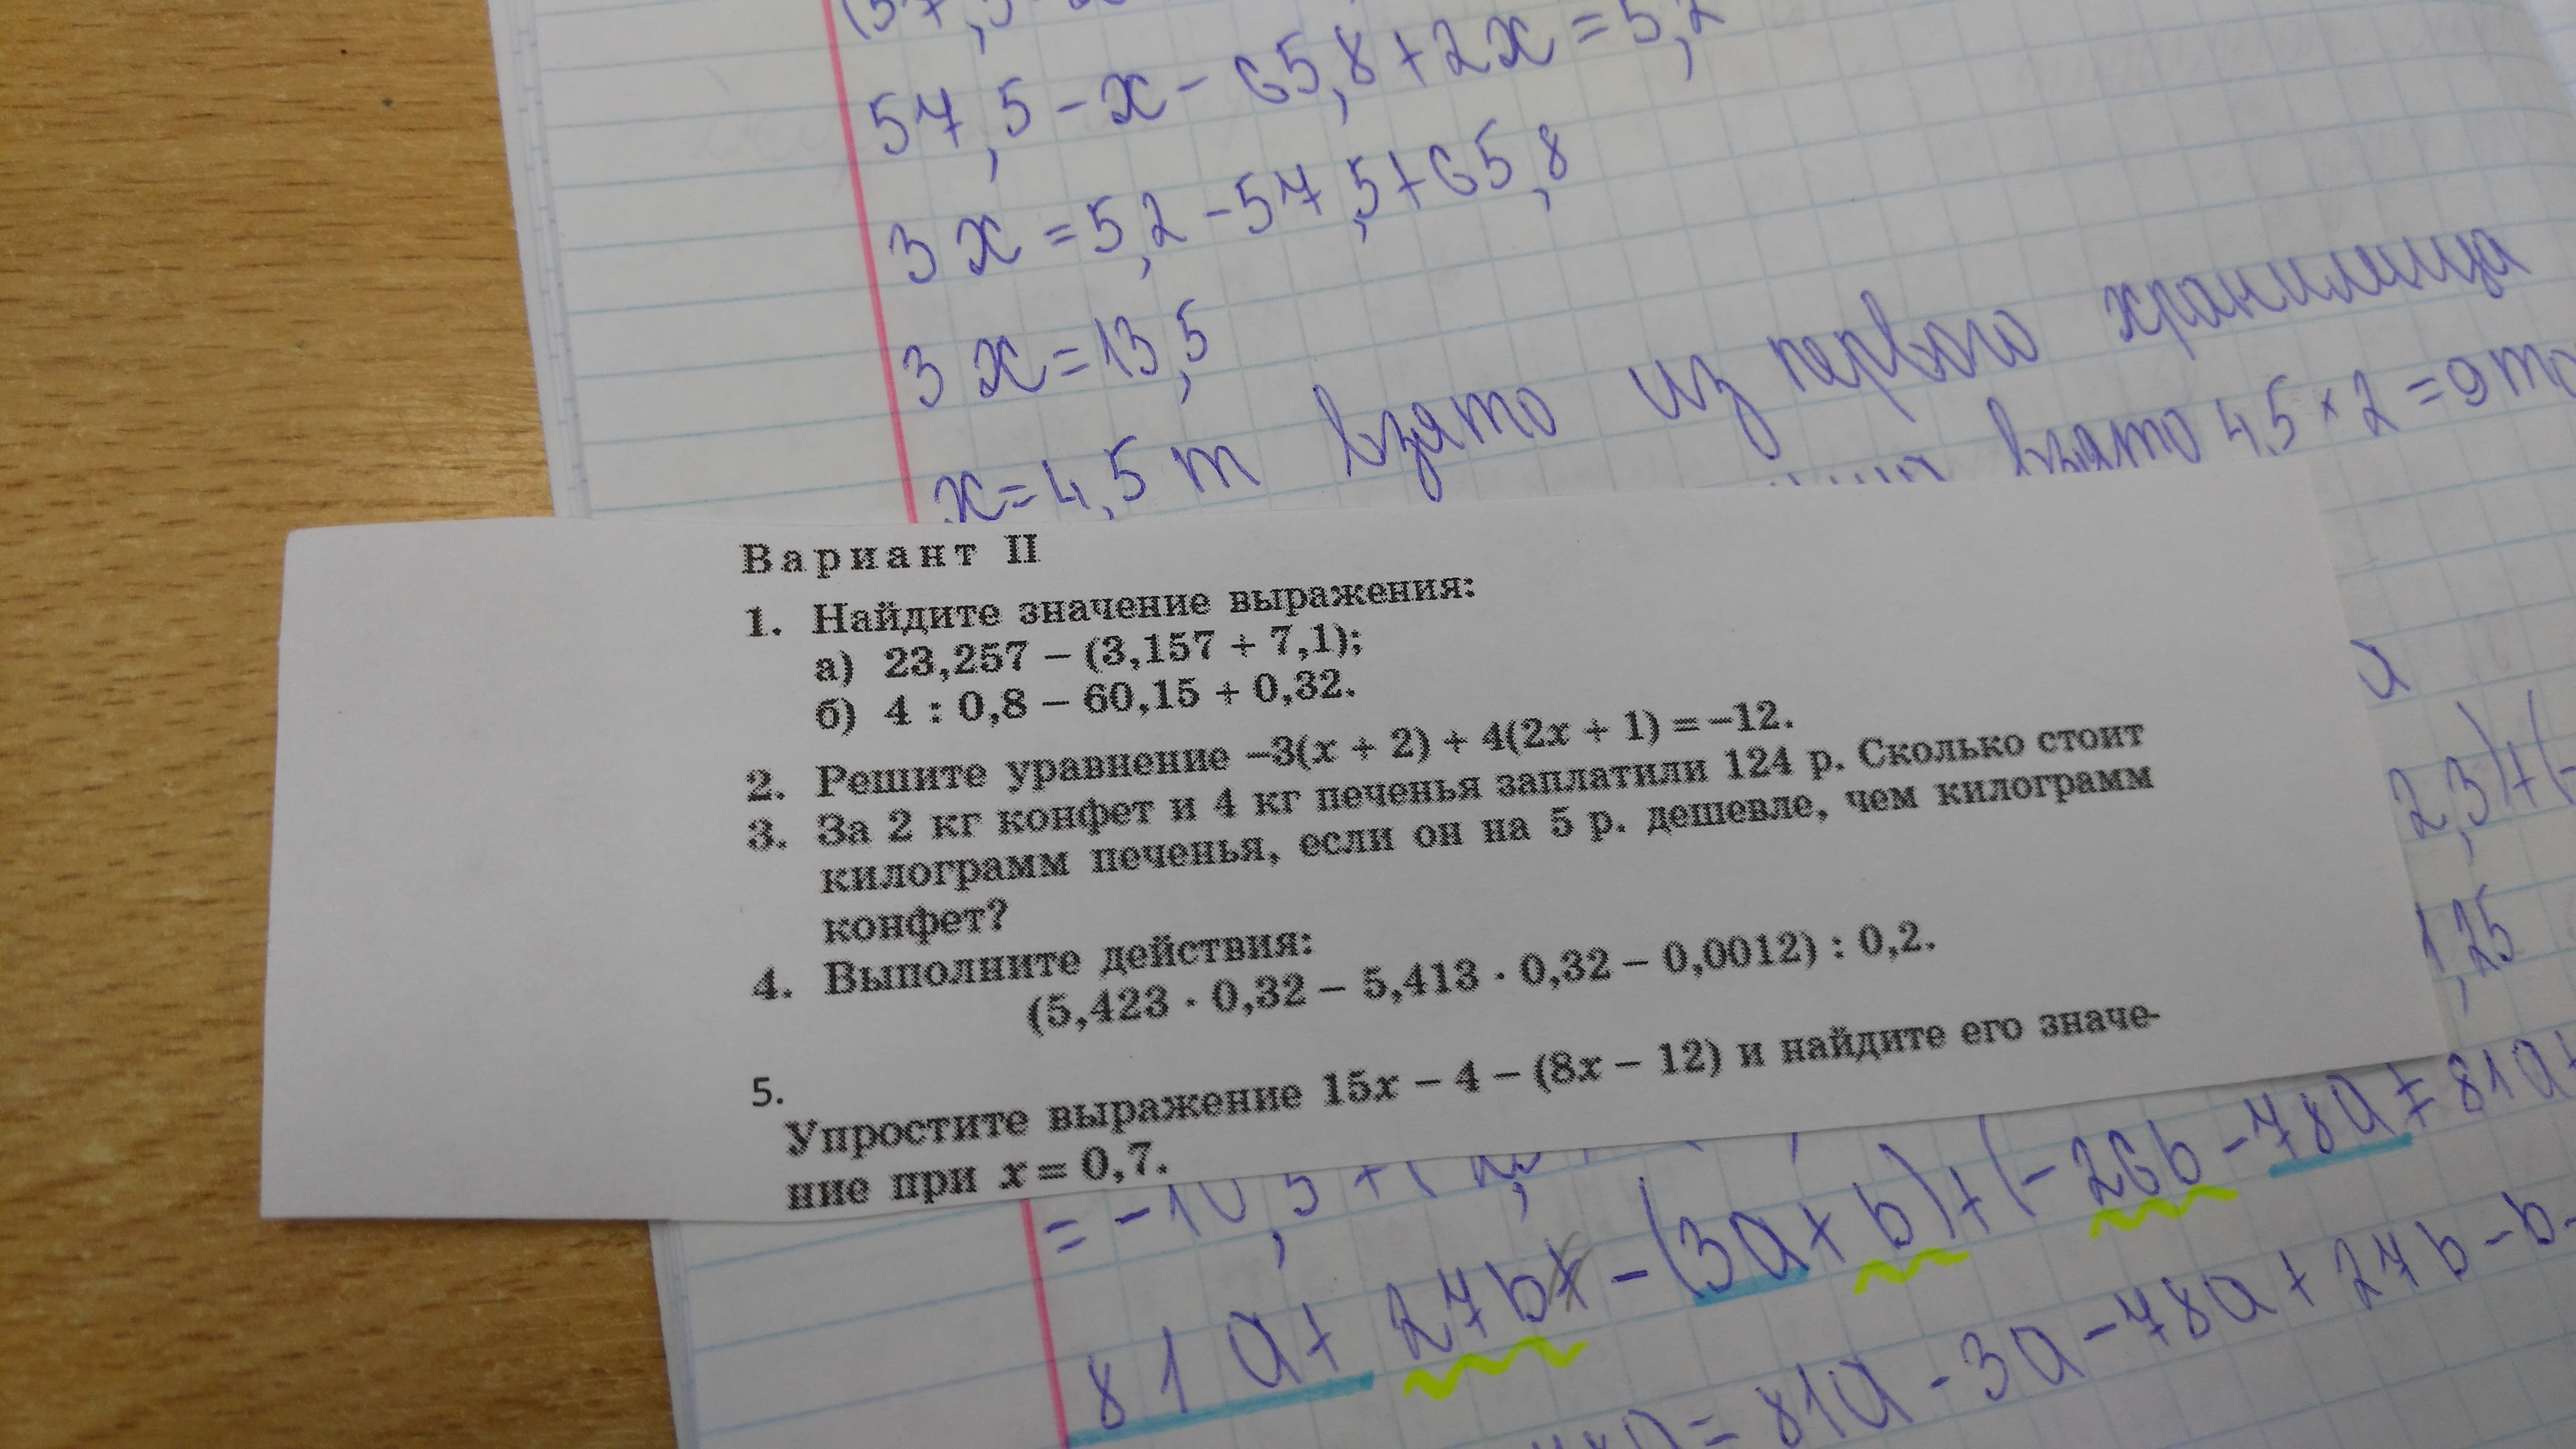 57,5-x-65,8+2x=5,2
3x=5,2-57,5+65,8
3x=13,5
x=4,5 т взято из первого хранилища
взято 4,5×2=9т
Вариант II
1. Найдите значение выражения:
а) 23,257 – (3,157 + 7,1);
б) 4 : 0,8 – 60,15 + 0,32.
2. Решите уравнение –3(x + 2) + 4(2x + 1) = –12.
3. За 2 кг конфет и 4 кг печенья заплатили 124 р. Сколько стоит
килограмм печенья, если он на 5 р. дешевле, чем килограмм
конфет?
4. Выполните действия:
(5,423 · 0,32 – 5,413 · 0,32 – 0,0012) : 0,2.
5.
Упростите выражение 15x – 4 – (8x – 12) и найдите его значе-
ние при x = 0,7.
2,3)+(-
1,25
81a+27b-(3a+b)+(-26b-78a=81a+
=81a-3a-78a+27b-b-